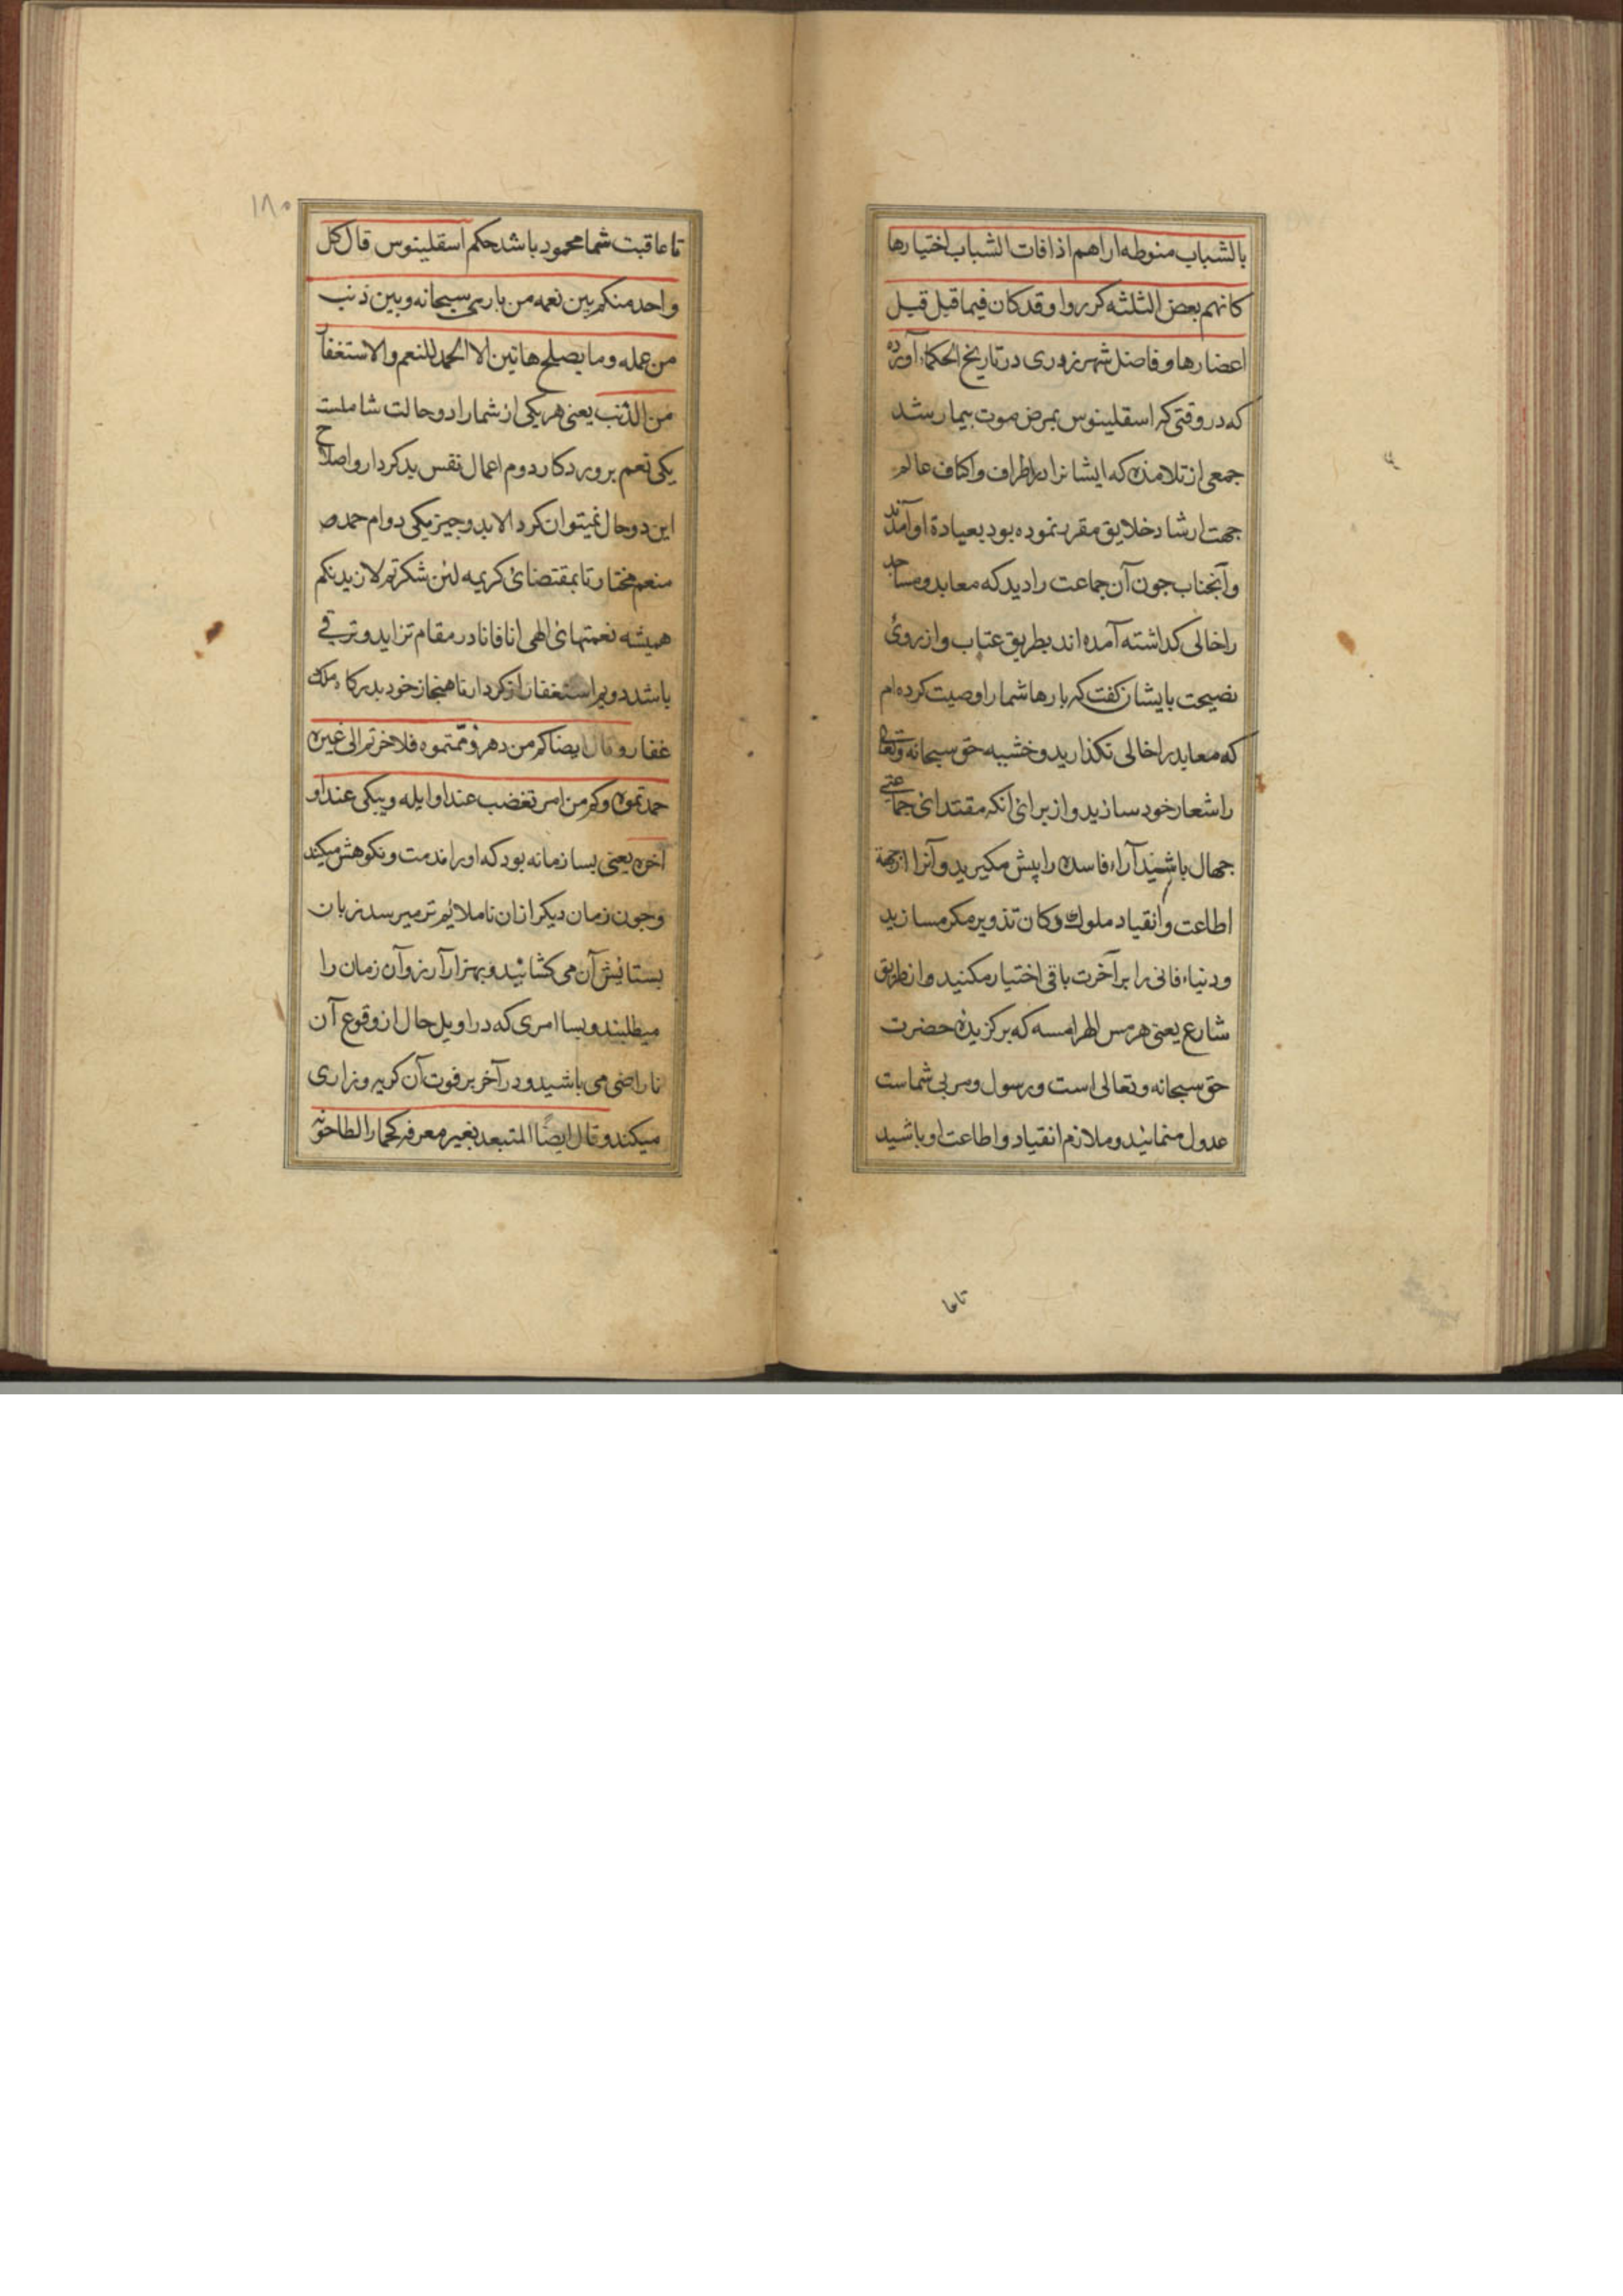 بالشباب منوطه اراهم اذا فات الشباب اختیارها
کانهم بعض الثلثه کرروا وقد کان فیما قبل قیل
اعضارها و فاضل شهرزوری در تاریخ الحکماء آورده
که در وقتی که اسقلینوس بمرض موت بیمار شد
جمعی از تلامذه که ایشانرا در اطراف و اکناف عالم
جهت ارشاد خلایق مقرر نموده بود بعیادة او آمدند
و آنجناب چون آن جماعت را دید که معابد و مساجد
را خالی کداشته آمده اند بطریق عتاب و از روی
نصیحت بایشان کفت که بارها شما را وصیت کرده ام
که معابد را خالی نکذارید و خشیه حق سبحانه وتعالی
را شعار خود سازید و از برای انکه مقتدای جماعتی
جهال باشید آراء فاسده را پیش مکیرید و آنرا از جهة
اطاعت و انقیاد ملوک دکان تزویر مکر مسازید
و دنیاء فانی را بر آخرت باقی اختیار مکنید و از طریق
شارع یعنی هرمس الهرامسه که برکزیده حضرت
حق سبحانه وتعالی است و رسول و مربی شماست
عدول منمائید و ملازم انقیاد و اطاعت او باشید
تا عا
۱۸۰
تا عاقبت شما محمود باشد حکم اسقلینوس قال کل
واحد منکم بین نعمه من باریه سبحانه وبین ذنب
من عمله وما یصلح هاتین الا الحمد للنعم والاستغفار
من الذنب یعنی هر یکی از شما را دو حالت شاملست
یکی نعم پروردکار دوم اعمال نفس بدکردار و اصلاح
این دو حال نمیتوان کرد الا بدو چیز یکی دوام حمد
منعم مختار تا بمقتضای کریمه لئن شکرتم لازیدنکم
همیشه نعمتهای الهی انا فانا در مقام تزاید و ترقی
باشد دویم استغفار از کردار ناهنجار خود بدرکاه ملک
غفار و قال ایضا کم من دهر ذممتموه فلا خرتم الی غیره
حمدتموه وکم من امر تغضب عند اوایله ویبکی عند او
اخره یعنی بسا زمانه بود که او را مذمت و نکوهش میکنید
و چون زمان دیکر از ان ناملائم تر میرسد زبان
بستایش آن می کشائید و بهزار آرزو آن زمان را
میطلبند و بسا امری که در اویل حال از وقوع آن
ناراضی می باشید و در آخر بر فوت آن کریه و زاری
میکند و قال ایضا المتبعد بغیر معرفه کحمار الطاحونه